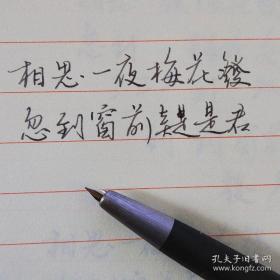 相思一夜梅花發
忽到窗前疑是君
孔夫子旧书网